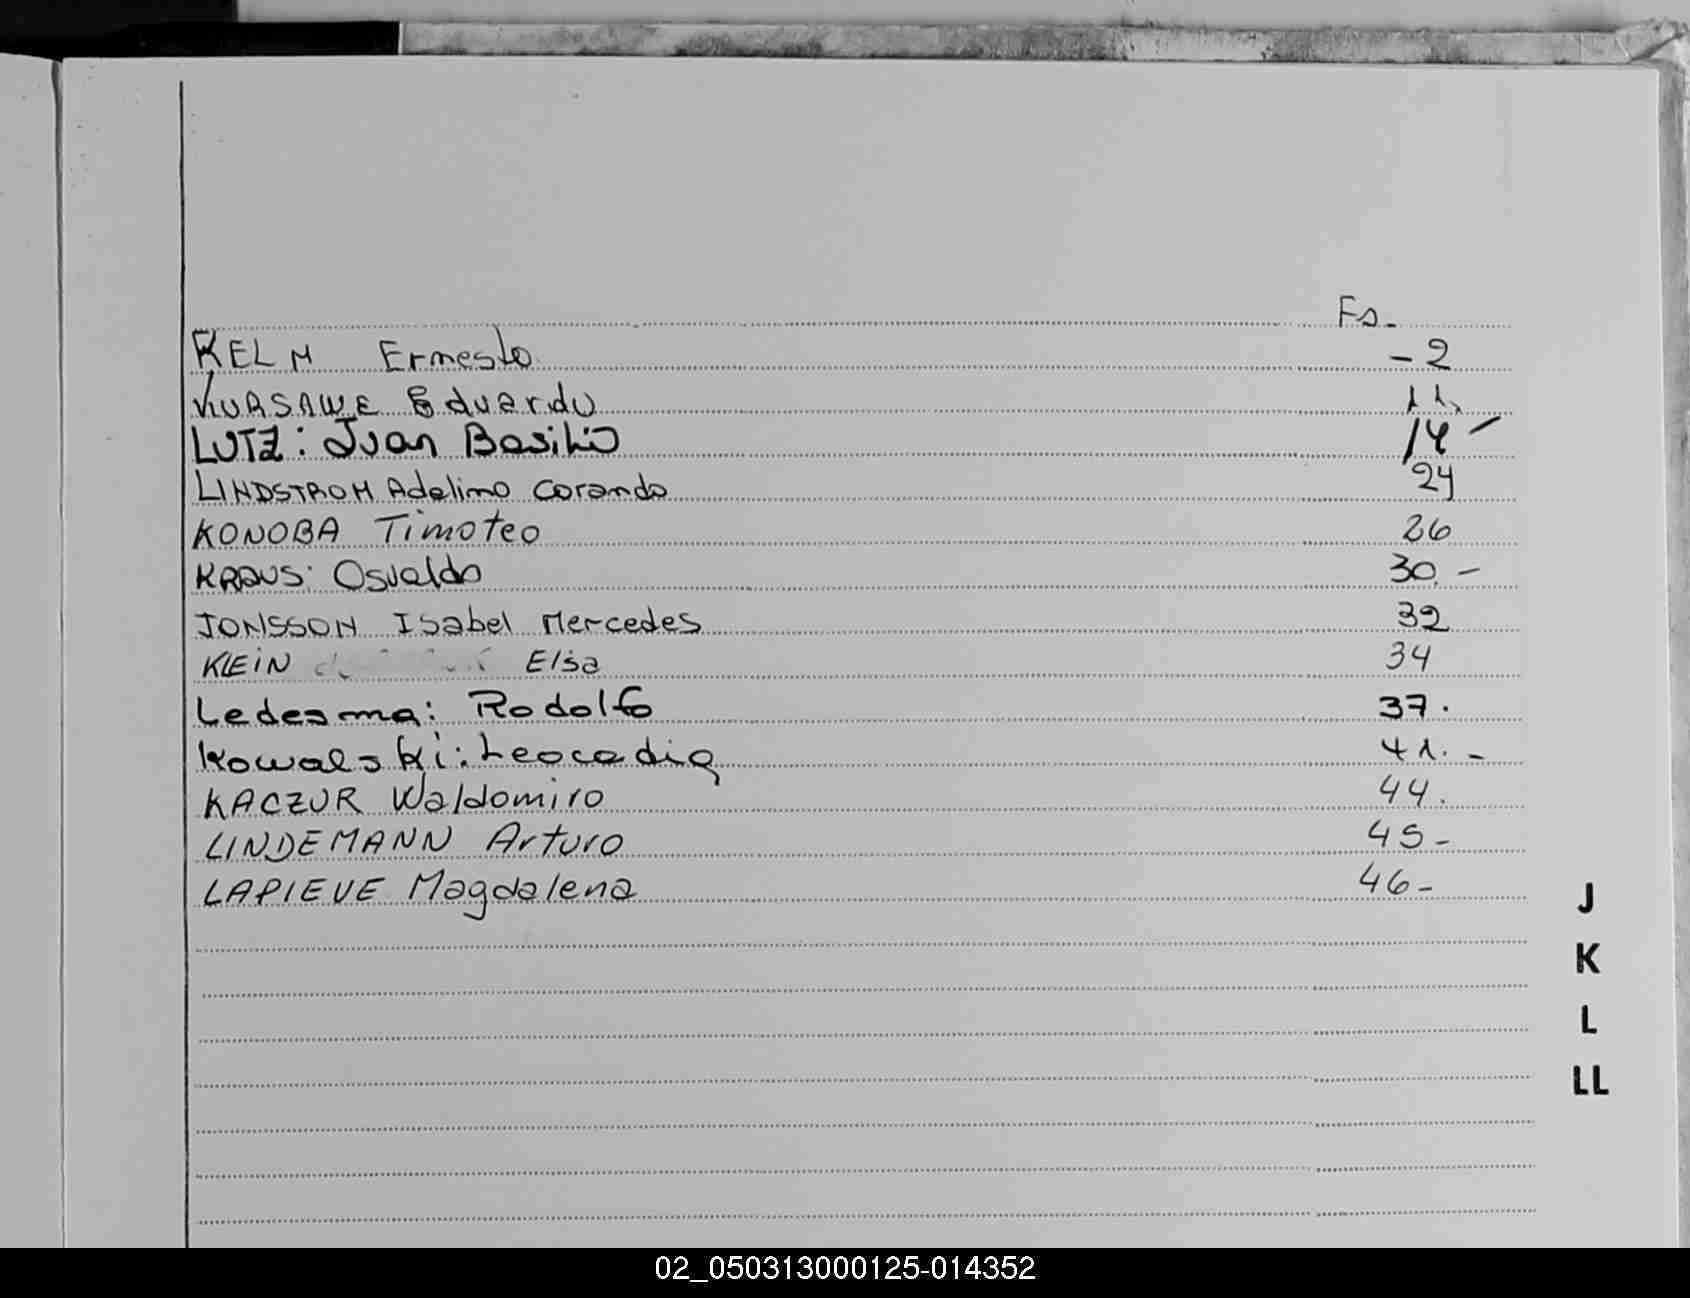 Fs.
KELM Ernesto - 2
KURSAWE Eduardo 11.
LUTZ: Juan Basilio 14 -
LINDSTROM Adelimo Corando 24
KONOBA Timoteo 26
KRAUS: Osvaldo 30. -
JONSSON Isabel Mercedes 32
KLEiN Elsa 34
Ledesma: Rodolfo 37.
Kowalski: Leocadia 41. -
KACZUR Waldomiro 44.
LINDEMANN Arturo 45-
LAPIEVE Magdalena 46-
J
K
L
LL
02_050313000125-014352